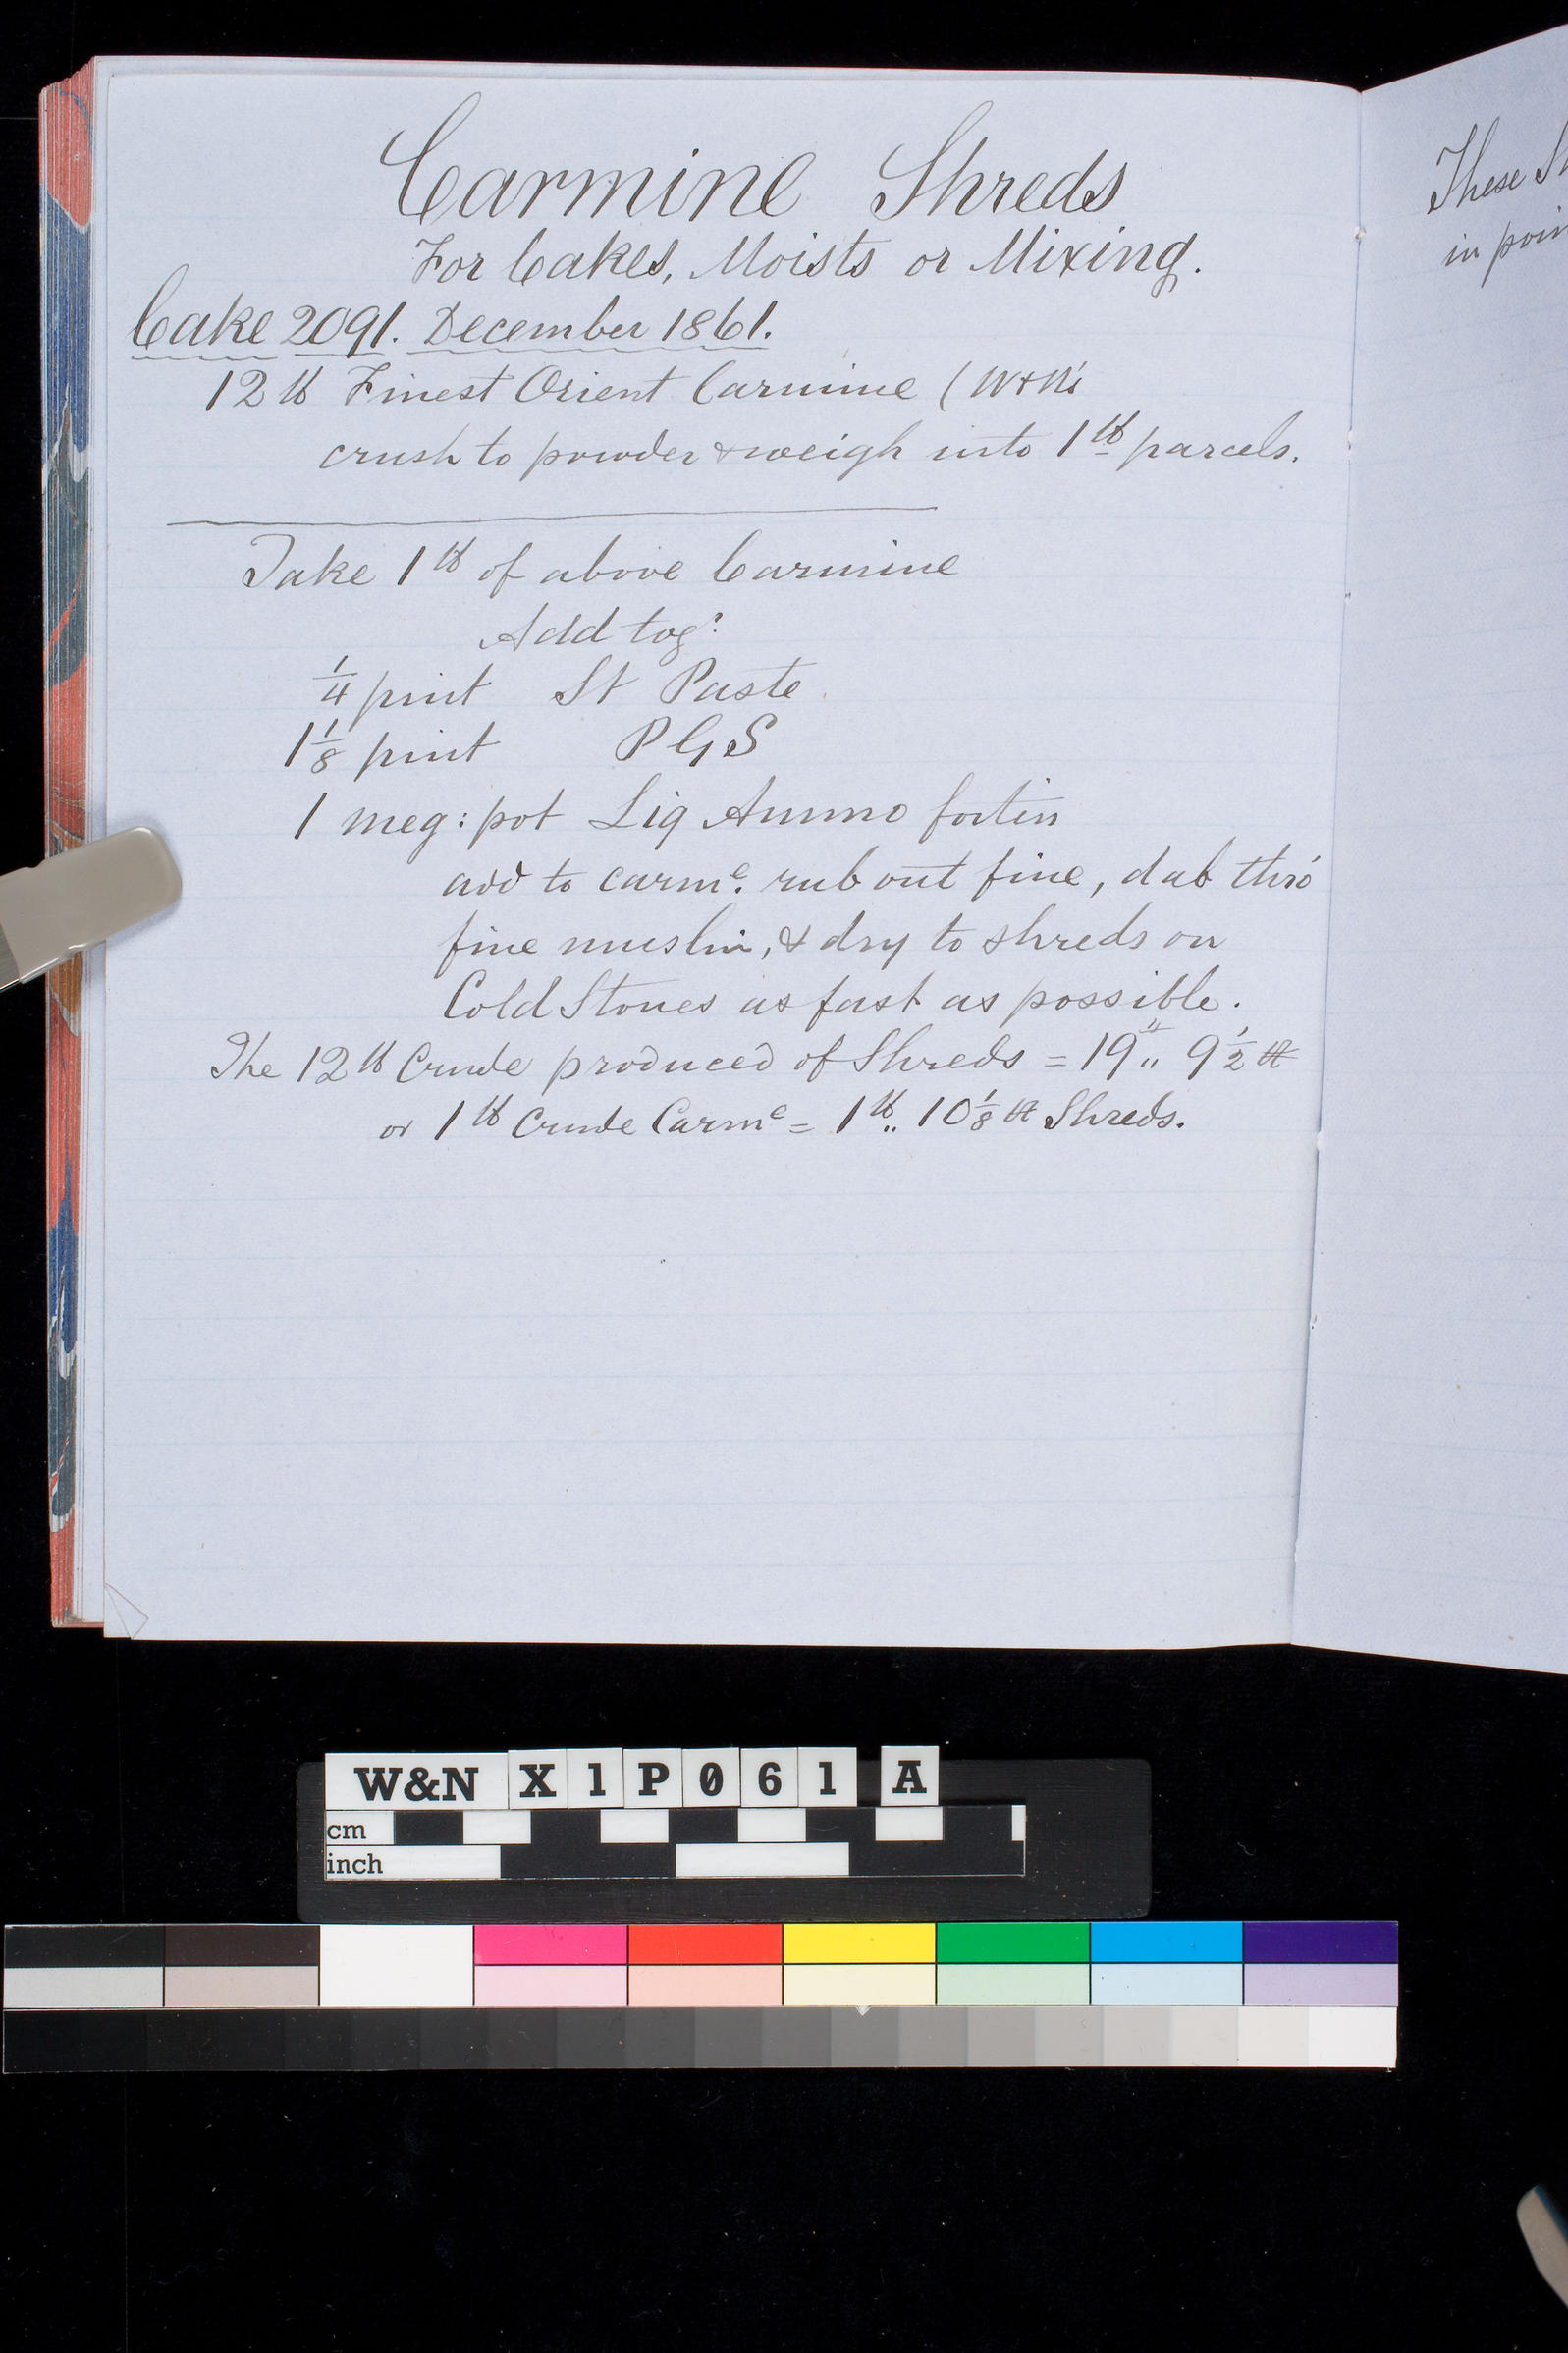 Carmine Shreds
For Cakes, Moists or Mixing.
Cake 2091. December 1861.
12 lb Finest Orient Carmine (W+N's
crush to powder & weigh into 1 lb parcels.
Take 1 lb of above Carmine
Add togr:
1/4 pint St Paste
1 1/8 pint PGS
1 meg: pot Liq Ammo fortis
add to carme. rub out fine, dab thro'
fine muslin, & dry to shreds on
Cold Stones as fast as possible.
The 12 lb Crude produced of Shreds = 19 lb,, 9 1/2
or 1 lb Crude Carme = 1 lb,, 10 1/8 Shreds.
These
in
W&N X1P061 A
cm
inch